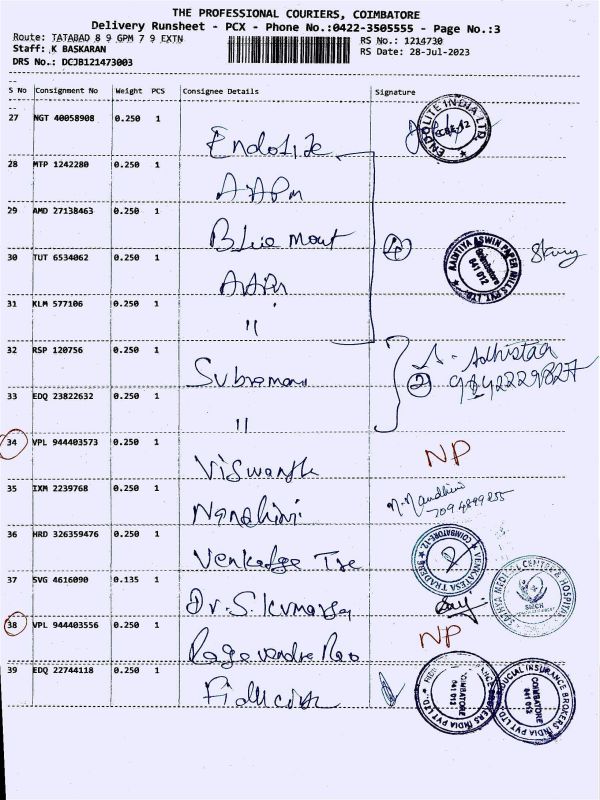 THE PROFESSIONAL COURIERS, COIMBATORE
Delivery Runsheet - PCX - Phone No.:0422-3505555 - Page No.:3
Route: TATABAD 8 9 GPM 7 9 EXTN RS No.: 1214730
Staff: K BASKARAN RS Date: 28-Jul-2023
DRS No.: DCJB121473003
S No Consignment No Weight PCS Consignee Details Signature
27 NGT 40058908 0.250 1 ENDOLITE INDIA LTD
Endolite
28 MTP 1242280 0.250 1
AAPM
29 AMD 27138463 0.250 1
Blue Mount 4
30 TUT 6534062 0.250 1 AADITIYA ASWIN PAPER MILLS PVT. LTD. Coimbatore 641 012
AAPM
31 KLM 577106 0.250 1
"
32 RSP 120756 0.250 1
Subramani 2 9842229827
33 EDQ 23822632 0.250 1
"
34 VPL 944403573 0.250 1 NP
Viswanath
35 IXM 2239768 0.250 1 N. Nandhini
Nandhini
36 HRD 326359476 0.250 1 VENKATESA TRADERS COIMBATORE-12
37 SVG 4616090 0.135 1 MEDICAL CENTRE & HOSPITAL SMCH
Dr. S. Kumarsy
38 VPL 944403556 0.250 1 NP
Ragavendra Rao
39 EDQ 22744118 0.250 1 INSURANCE BROKERS INDIA PVT LTD COIMBATORE 641 012